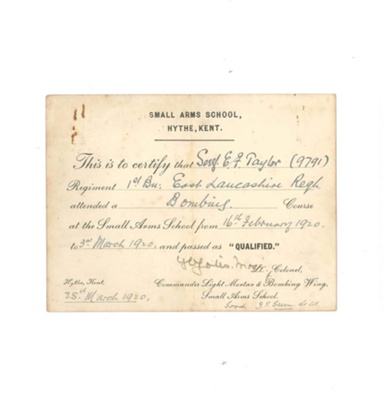 SMALL ARMS SCHOOL,
HYTHE, KENT.
This is to certify that Sergt E. F. Taylor (9791)
Regiment 1st Bn: East Lancashire Regt.
attended a Bombing Course
at the Small Arms School from 16th February 1920.
to 3rd March 1920. and passed as "QUALIFIED."
Colonel,
Hythe, Kent. Commander Light Mortar & Bombing Wing,
March 1920. Small Arms School.